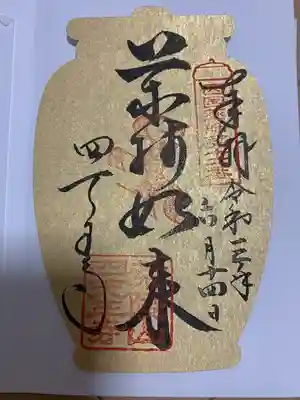 奉拝 令和三年
六月十四日
薬師如来
四天王寺